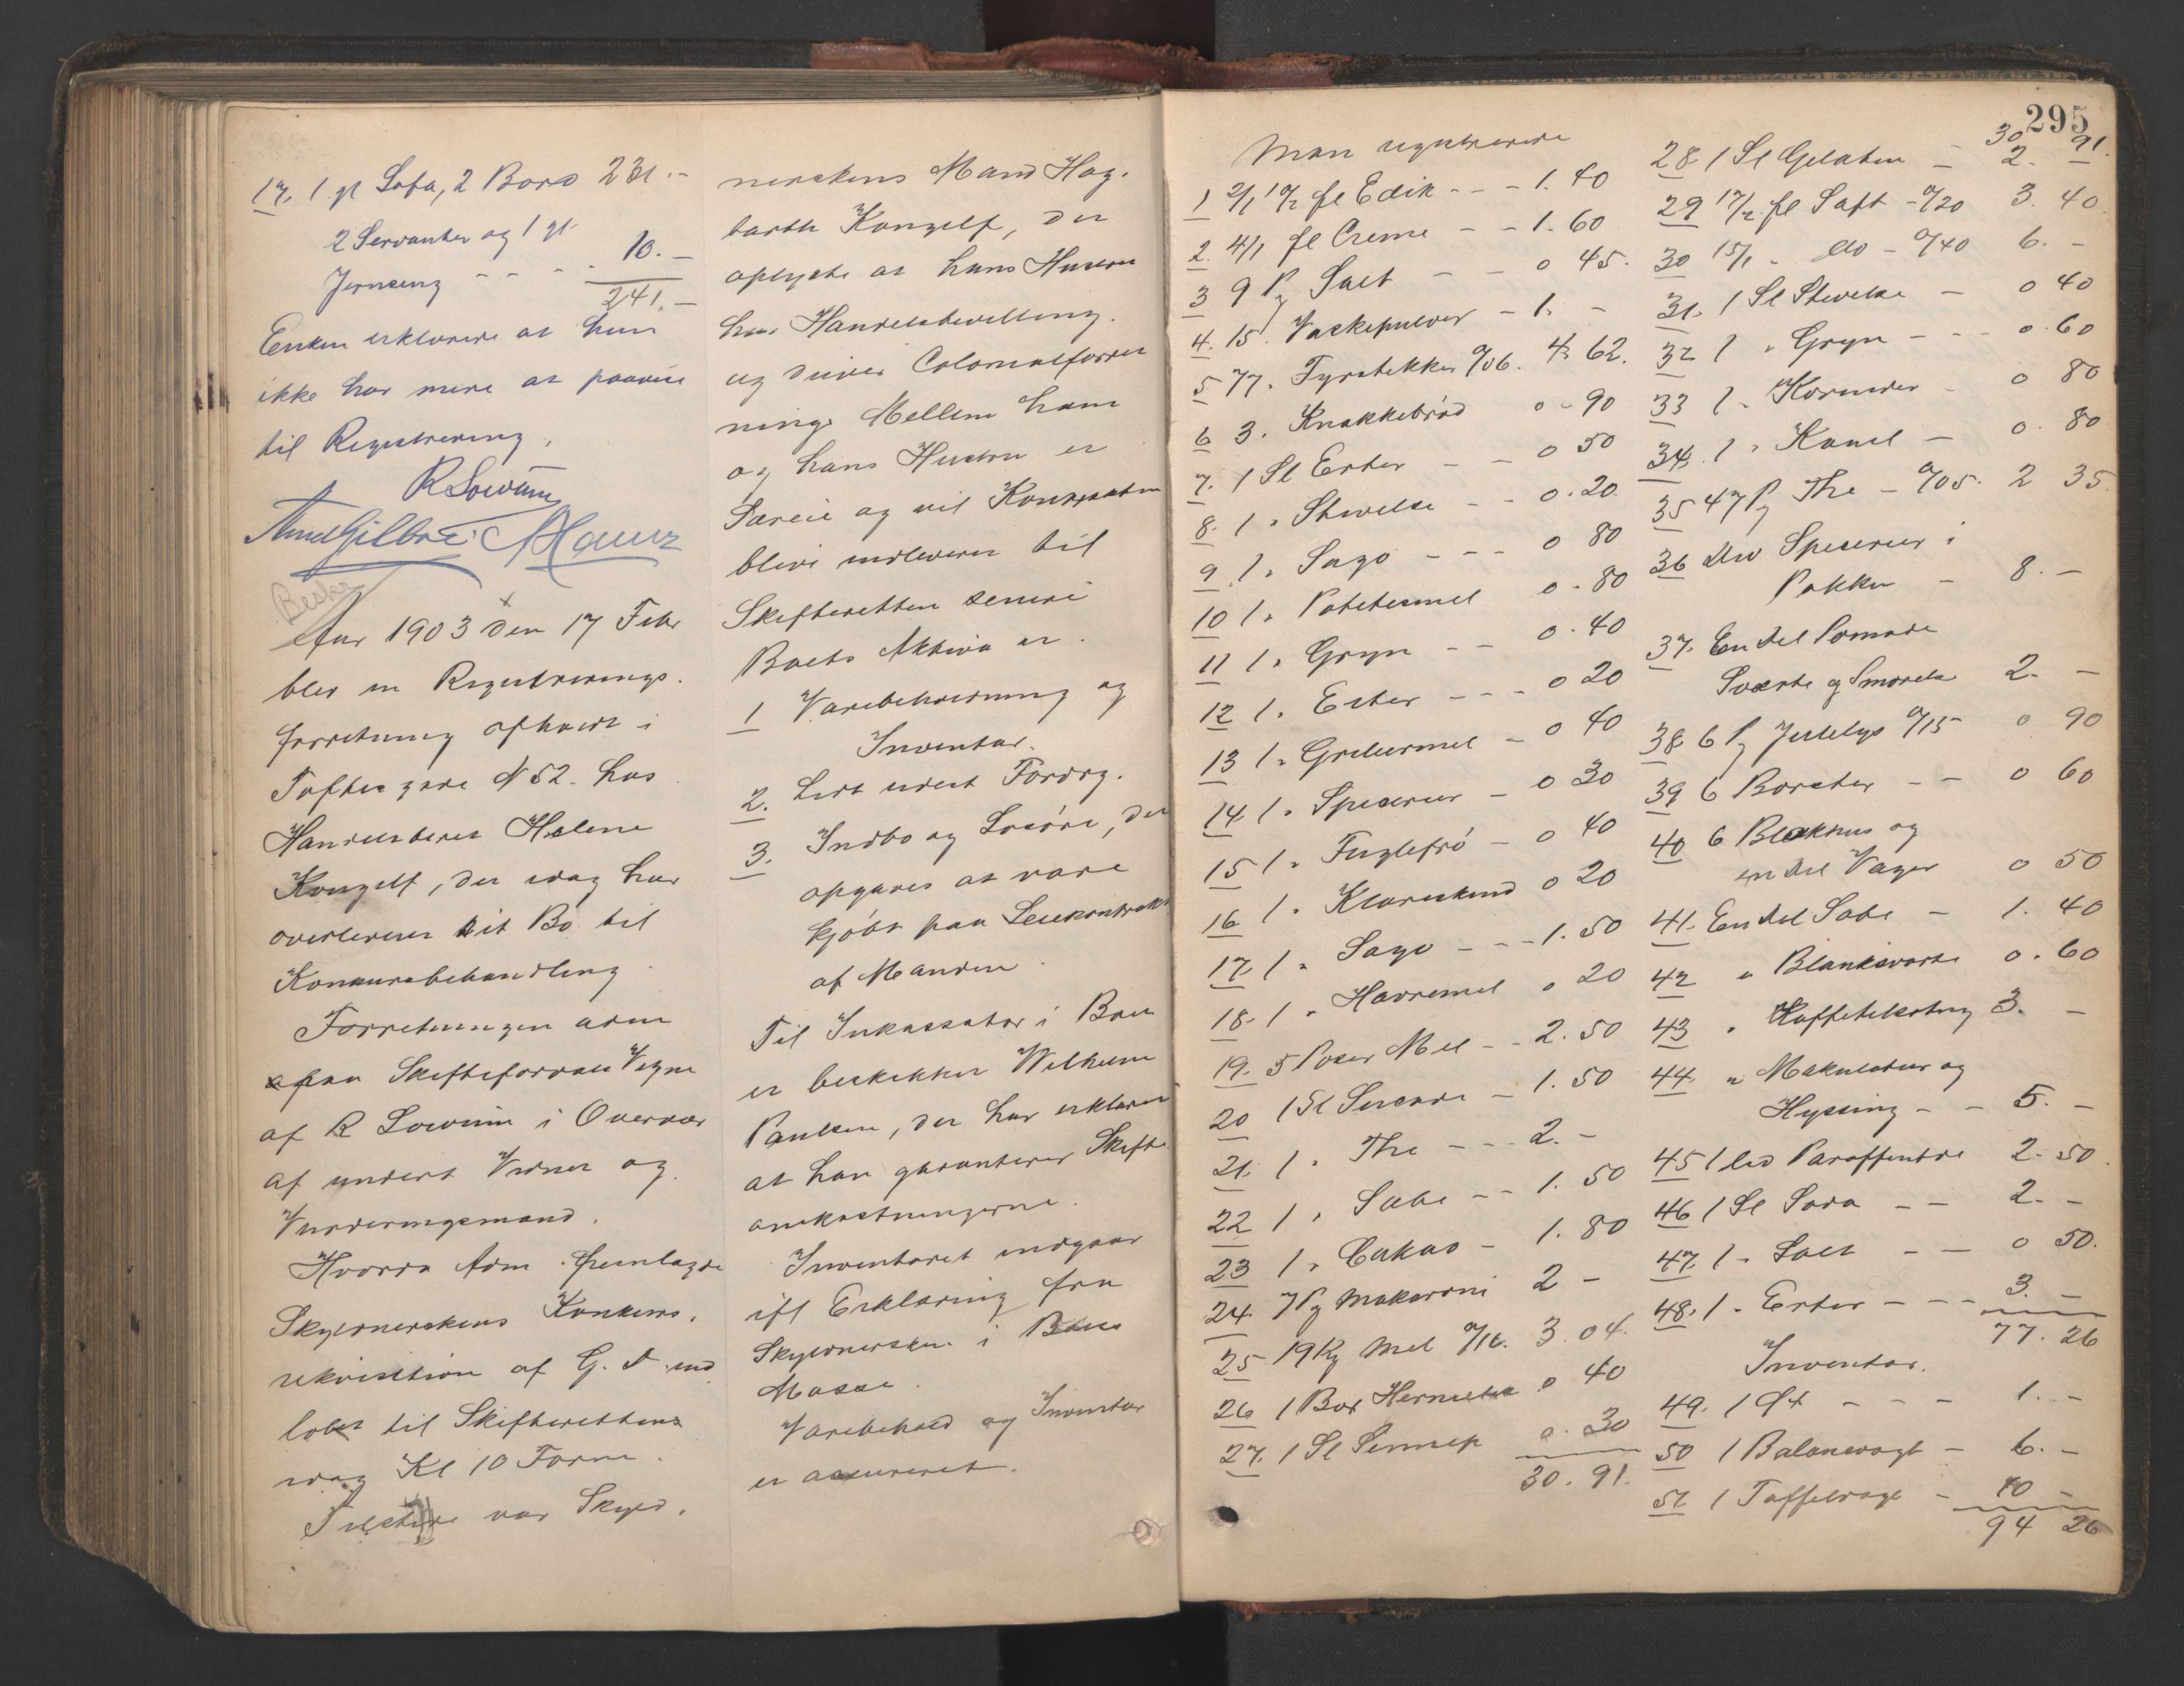 17. 1 gl Sofa, 2 Bord 231.-
2 Servanter og 1 gl
Jernseng - - - - 10.-
241.-
Enken erklærede at hun
ikke har mere at paavise
til Registrering.
R Lowum
Besk
Aar 1903 den 17 Febr
blev en Registrerings-
forretning afholdt i
Toftes gade N 52. hos
Handlende Helene
Kongelf, der idag har
overleveret sit Bo til
Konkursbehandling.
Forretningen adm
paa Skifteforvalt Vegne
af R Lowum i Overvær
af undert Vidner og
Vurderingsmænd.
Hvorda Adm. fremlagde
Skyldnerskens Konkurs-
rekvisition af G. D. ind
lobet til Skifteretten
idag Kl 10 Form.
Tilstede var Skyld-
nerskens Mand Hag-
barth Kongelf, der
oplyste at hans Hustru
har Handelsbevilling
og driver Colonialforret
ning. Mellem ham
og hans Hustru er
Særeie og vil Kontrakten
blive indleveret til
Skifteretten senere
Boets Aktiva er.
1 Varebeholdning og
Inventar.
2. Lidt udest Fordrg.
3. Indbo og Losøre, der
opgaves at være
kjøbt paa Leiekontrakt
af Manden.
Til Inkassator i Boet
er beskikket Wilhelm
Paulsen, der har erklæret
at han garanterer Skifte
omkostningerne.
Inventaret indgaar
ifl Erklæring fra
Skyldnersken i Boets
Masse.
Varebehold og Inventar
er assureret.
295
Man registrerede
1 2/1 17/2 fl Edik - - - 1. 40
2. 4/1 fl Creme - - 1. 60
3 9 Pg Salt - - 0 45.
4. 15. Vaskepulver - 1. -
5 77. Fyrstikker a/06. 4. 62.
6 3. Knakkebrød 0 - 90
7. 1 Sl Erter - - 0 50
8. 1 " Stivelse - - 0. 20.
9 1 " Sago - - - 0 80
10 1 " Potetesmel 0 - 80
11 1 " Gryn - - 0. 40
12 1 " Erter - - - 0 20
13 1 " Gröbermel - 0 40
14 1 " Specerier - 0 30
15 1 " Fuglefrö - 0 40
16 1 " Klareskind 0 20
17. 1 " Sago - - - 1. 50
18. 1 " Havremel 0 20
19. 5 Poser Mel - - 2. 50
20 1 Sl Succade - 1. 50
21. 1 " The - - - 2. -
22 1 " Sæbe - - 1. 50
23 1 " Cakao - 1. 80
24. 7 Pg Makaroni 2 -
25. 19 Kg Mel a/16. 3. 04.
26 1 Box Hermetik 0 40
27. 1 Sl Sennep 0. 30
30. 91.
30 91.
28 1 Sl Gelatin - 2. -
29 17/2 fl Saft - a/20 3. 40
30 15/1 " do - a/40 6. -
31. 1 Sl Stivelse - 0 40
32 1 " Gryn - - - 0. 60
33 1 " Korender - 0 80
34. 1 " Kanel - 0. 80
35 47 Pg The - a/05. 2 35
36 Div Specerier i
Pakker - 8. -
37. En Del Pomade
Sværte og Smorels 2. -
38 6 Pg Julelys a/15 0 90
39 6 Borster - - 0 60
40 6 Blækhus og
en Del Vager 0 50
41. En Del Sæbe - 1. 40
42 " Blanksværte 0. 60
43 " Kaffetilsætng 3. -
44. " Makulatur og
Hyssing - - 5. -
45 1 Paraffin 2. 50
46 1 Sl Soda - - 2. -
47. 1 " Salt - - 0 50.
48. 1 " Erter - - - 3. -
77. 26
Inventar.
49. 1 - - - 1. -
50 1 Balancevægt - 6. -
51 1 Taffelvægt - 10 -
94 26